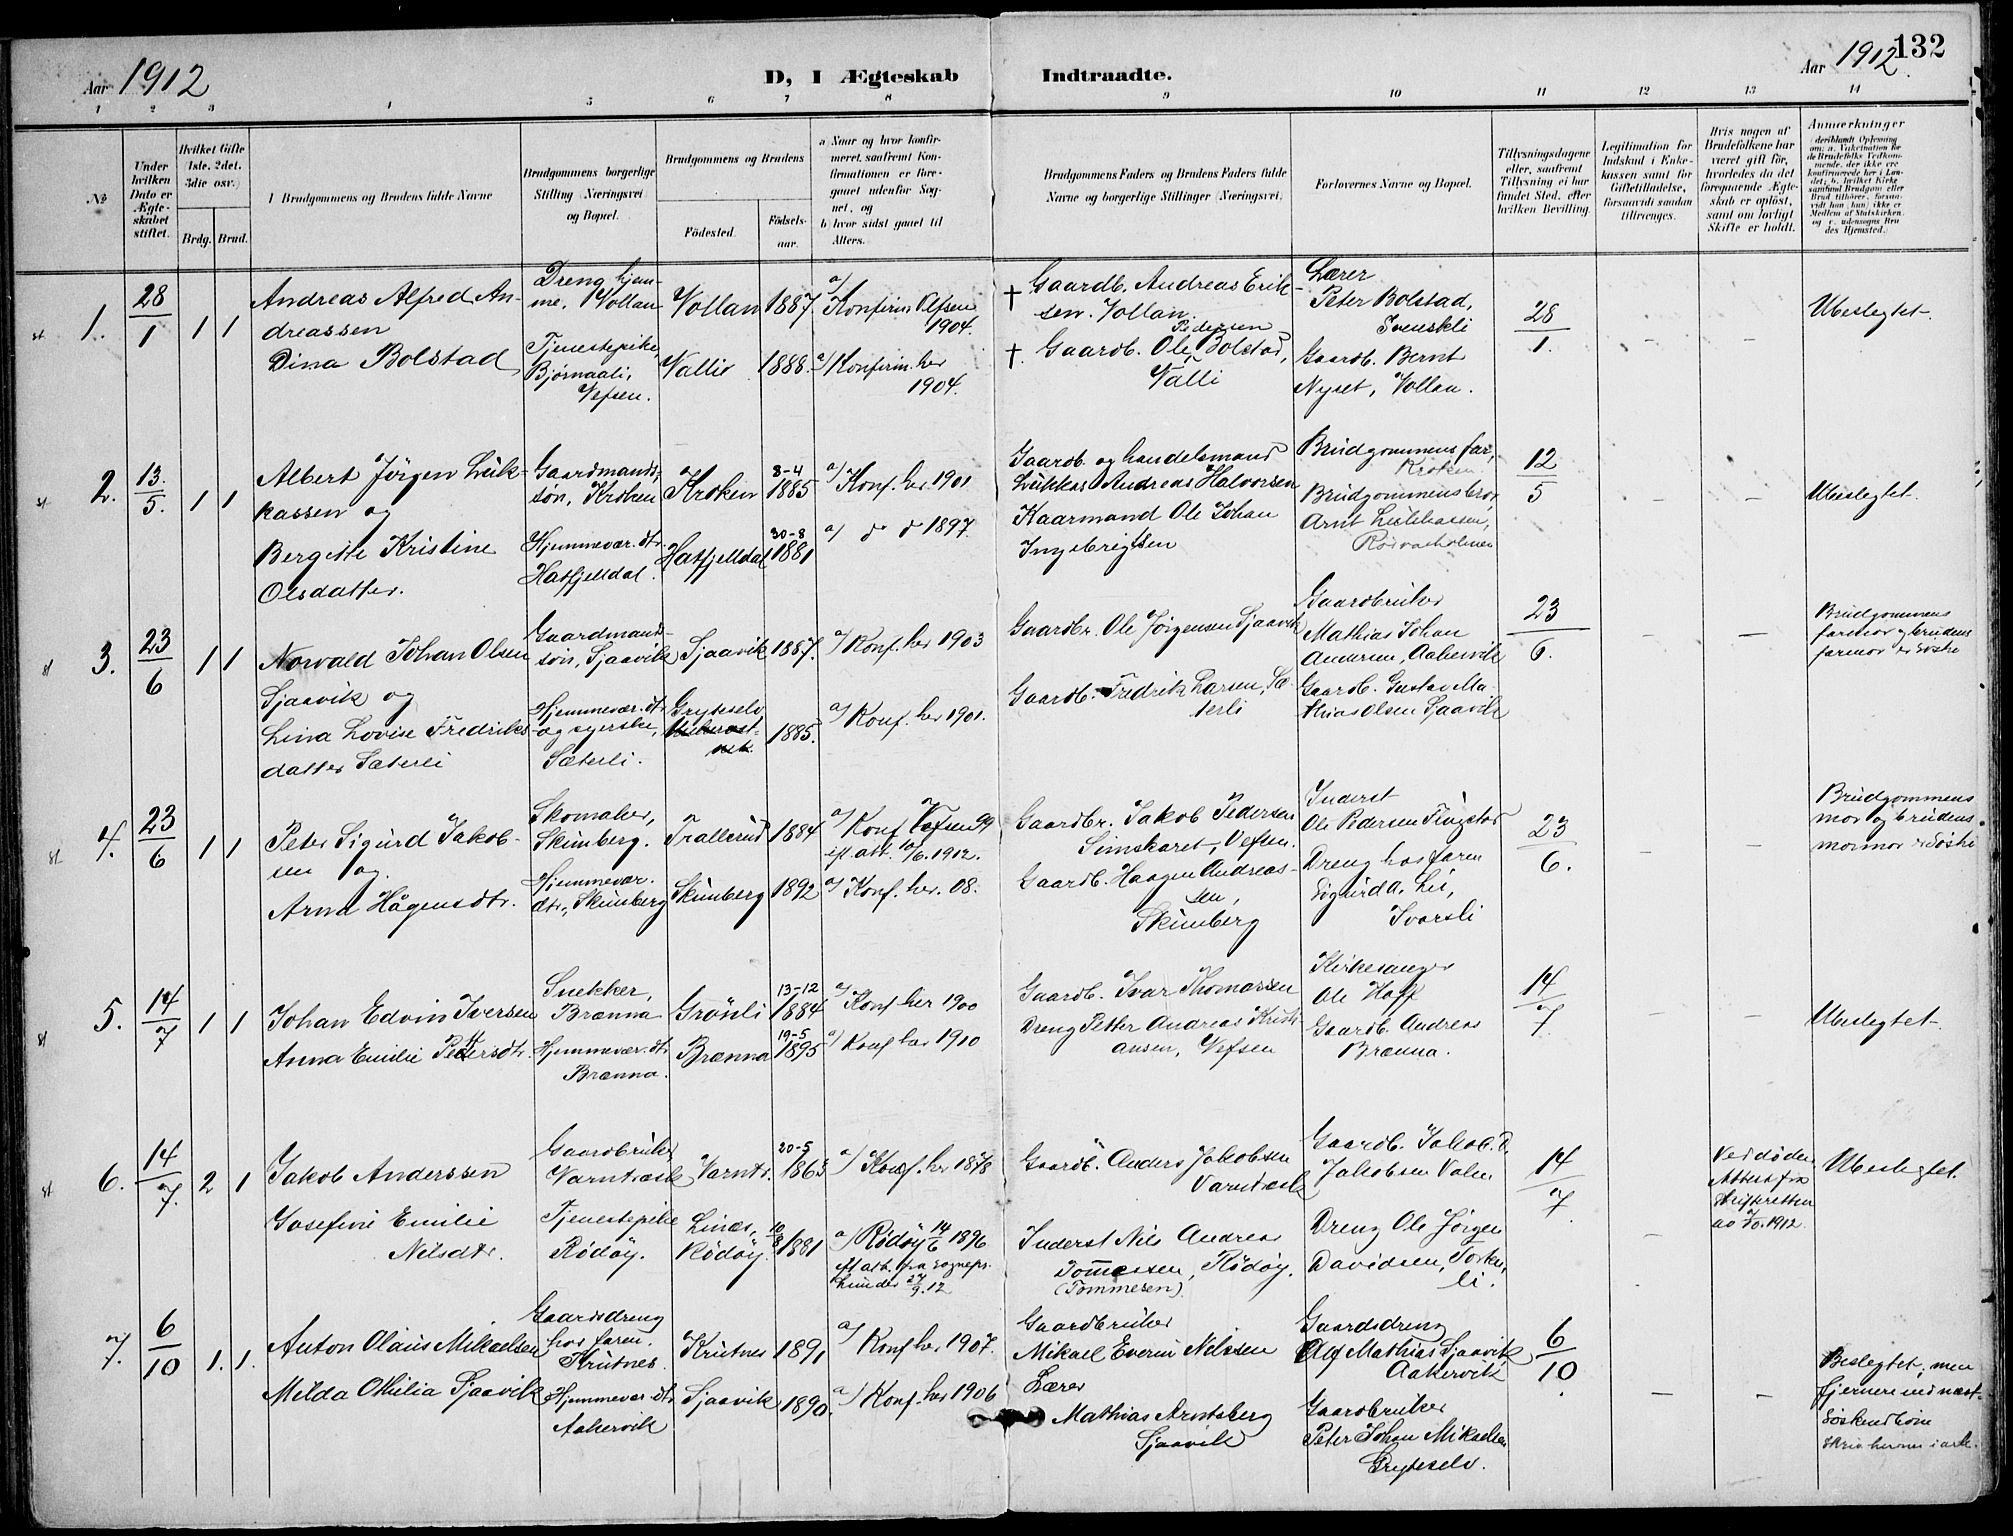 Aar 1912
D, I Ægteskab Indtraadte.
Aar 1912.
132
1 2 3 4 5 6 7 8 9 10 11 12 13 14
№
Under hvilken Dato er Ægteskabet stiftet.
Hvilket Gifte 1ste, 2det, 3die osv.
Brdg. Brud.
Brudgommens og Brudens fulde Navne
Brudgommens borgerlige Stilling (Næringsvei) og Bopæl.
Brudgommens og Brudens
Fødested.
Fødselsaar.
a Naar og hvor konfirmeret, saafremt Konfirmationen er foregaaet udenfor Sognet, og
b) hvor sidst gaaet til Alters.
Brudgommens Faders og Brudens Faders fulde Navne og borgerlige Stillinger (Næringsvei)
Forlovernes Navne og Bopæl.
Tillysningsdagene eller, saafremt Tillysning ei har fundet Sted, efter hvilken Bevilling.
Legitimation for Indskud i Enkekassen samt for Giftetilladelse, forsaavidt saadan tiltrænges.
Hvis nogen af Brudefolkene har været gift før, hvorledes da det foregaaende Ægteskab er opløst, samt om lovligt Skifte er holdt.
Anmærkninger
st 1. 28/1 1 1
Andreas Alfred Andreassen
Dina Bolstad
Dreng hjemme, Vollan
Tjenestepike, Bjørnaali, Vefsen.
Vollan 1887.
Vallir 1888.
a) Konfirm. Olfsen 1904.
a) Konfirm. her 1904.
† Gaardb. Andreas Eriksen. Vollan.
† Gaardb. Ole Pedersen Bolstad, Valli
Lærer Peter Bolstad, Svenskli
Gaardb. Bernt Nyset, Vollan.
28/1.
– –
Ubeslegtet.
st 2. 13./5. 1 1
Albert Jörgen Lukkassen og
Bergitte Kristine Olsdatter.
Gaardmandssøn, Kroken
Hjemmevær. dtr. Hatfjelldal.
Kroken 8-4 1885
Hatfjelldal 30-8 1881
a) Konf. her. 1901
a) d d 1897.
Gaardb. og handelsmand Lukkas Andreas Halvorsen
Kaarmand Ole Johan Ingebrigtsen
Brudgommens far, Kroken
Brudgommens bror, Arnt Lukkassen,
12/5
– –
Ubeslegtet.
st 3. 23/6 1 1
Norvald Johan Olsen Sjaavik og
Lina Lovise Fredriksdatter Sæterli
Gaardmandssøn, Sjaavik
Hjemmevær. dtr. og syerske, Sæterli.
Sjaavik 1887.
Gryteselv 1885.
a) Konf. her 1903
a) Konf. her 1901.
Gaardbr. Ole Jørgensen Sjaavik
Gaardb. Fredrik Larsen, Sæterli
Gaardbruker Mathias Johan Andersen, Aakervik
Gaardb. Gustav Mathias Olsen Sjaavik
23/6.
– –
Brudgommens farmor og brudens farmor er Søstre
st 4. 23/6 1 1
Peter Sigurd Jakobsen og
Arna Hågensdtr.
Skomaker, Skunberg.
Hjemmevær. dtr., Skunberg
Trallerud 1884
Skunberg 1892
a) Konf. Vefsen 99
a) Konf. her. 08.
Gaardbr. Jakob Pedersen Simskaret, Vefsen.
Gaardb. Haagen Andreassen, Skunberg
Inderst Ole Pedersen Tingstad
Dreng hos faren Sigurd A. Lie, Ivarsli
23/6.
– –
Brudgommens mor og brudens mormor er Søstre
st 5. 14/7 1 1
Johan Edvin Iversen
Anna Emilie Pettersdtr.
Snekker, Brænna
Hjemmevær. dtr. Brænna.
Grönli 13-12 1884
Brænna 19-5 1895
a) Konf her 1900
a) Konf her 1910
Gaardb. Ivar Thomassen
Dreng Petter Andreas Kristiansen, Vefsen
Kirkesanger Ole Hoff
Gaardb. Andreas Brænna.
14/7
– –
Ubeslegtet
st 6. 14/7. 2 1
Jakob Anderssen
Josefine Emilie Nilsdtr.
Gaardbruker Varntræsk
Tjenestepike Rødøy.
Varntr. 20-5 1863
Rødøy. 10/8 1881
a) Konf. her 1878
a) Rødøy 14/6 1896
Gaardb. Anders Jakobsen Varntræsk
Inderst Nils Andreas Tommessen, Rødøy. (Tommesen)
Gaardb. Jakob A. Jakobsen Valen
Dreng Ole Jørgen Davidsen,
14/7
–
Ved døden. Attest fra Skifteretten
Ubeslegtet.
7. 6/10 1. 1.
Anton Olaus Mikaelsen
Milda Othilia Sjaavik
Gaardsdreng hos faren. Krutnes
Hjemmevær. dtr. Aakervik
Krutnes 1891
Sjaavik 1890.
a) Konf her 1907.
a) Konf. her 1906
Gaardbruker Mikael Everin Nilssen
Lærer Mathias Arntsberg Sjaavik
Gaardsdreng Alf Mathias Sjaavik Aakervik
Gaardbruker Peter Johan Mikaelsen Gryteselv.
6/10.
– –
Beslegtet, men fjernere end næst-Søskendbørn